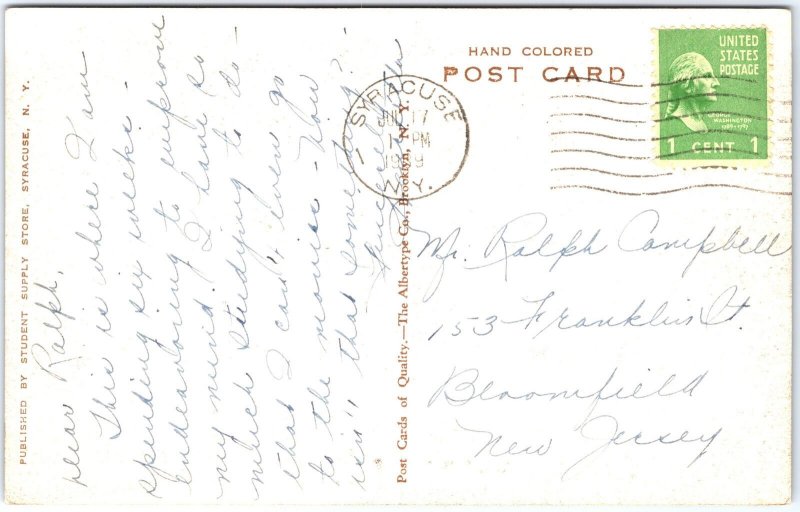 PUBLISHED BY STUDENT SUPPLY STORE, SYRACUSE, N. Y.
Dear Ralph,
This is where I am
spending six weeks -
endeavoring to improve
my mind. I have so
much studying to do -
that I can't even go
to the movies - Now
isn't that something?
Sincerely,
Post Cards of Quality.—The Albertype Co., Brooklyn, N. Y.
HAND COLORED
POST CARD
SYRACUSE
JUL 17
1 PM
1939
N.Y.
1
UNITED
STATES
POSTAGE
GEORGE
WASHINGTON
1789-1797
1 CENT 1
Mr. Ralph Campbell
153 Franklin St.
Bloomfield
New Jersey